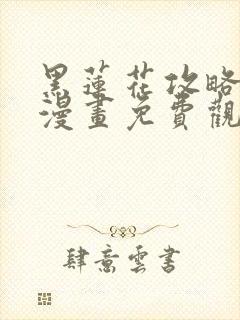 黑蓮花攻略
漫畫免費觀
肆意雲書